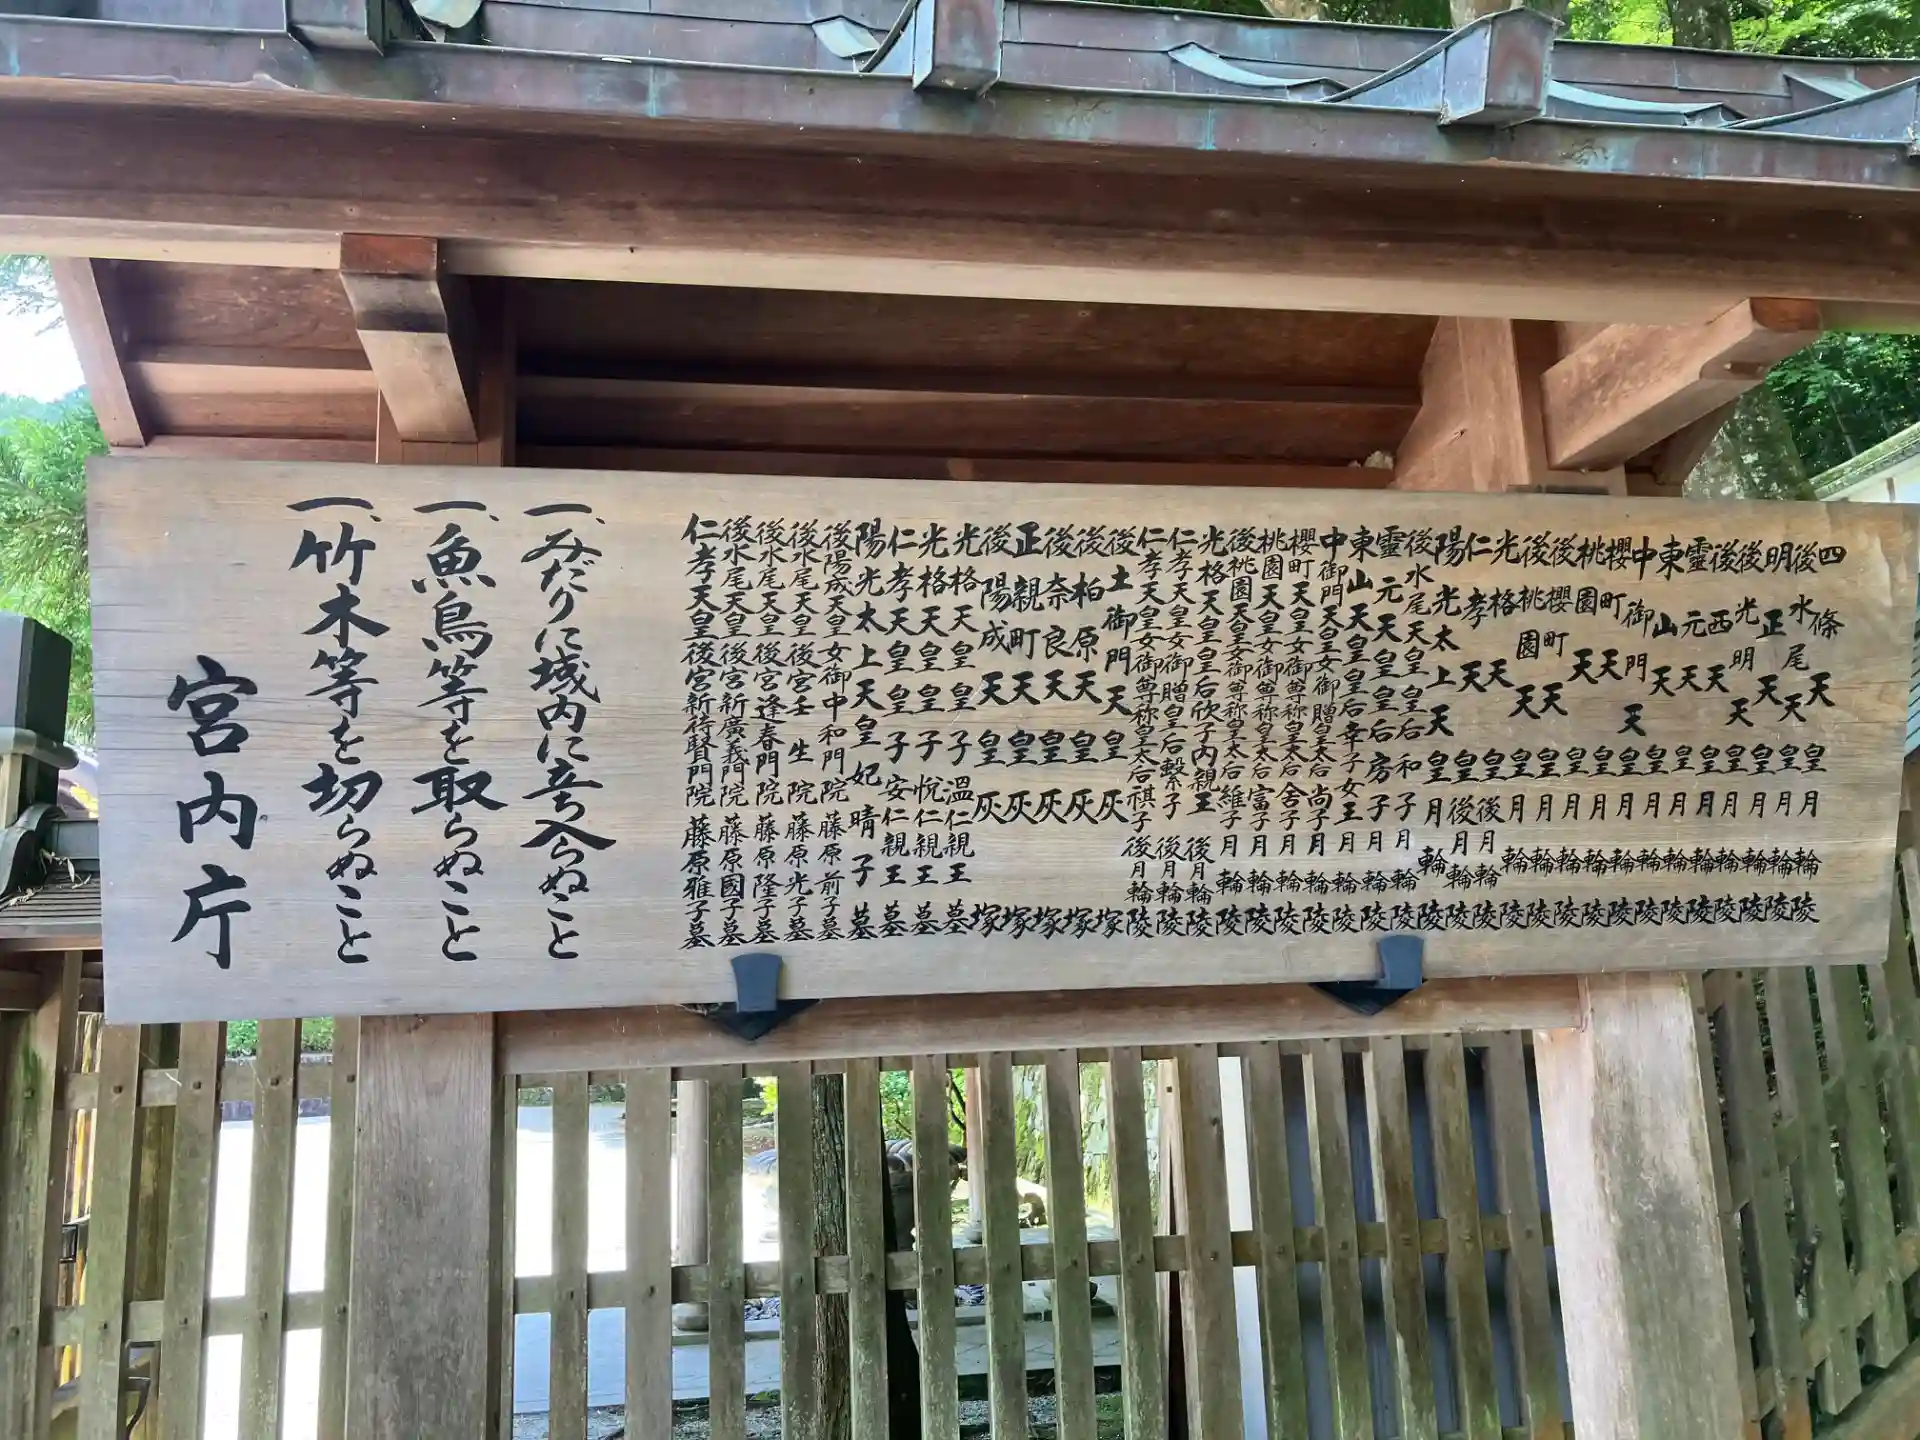 四條天皇月輪陵
後水尾天皇月輪陵
明正天皇月輪陵
後光明天皇月輪陵
後西天皇月輪陵
靈元天皇月輪陵
東山天皇月輪陵
中御門天皇月輪陵
櫻町天皇月輪陵
桃園天皇月輪陵
後櫻町天皇月輪陵
後桃園天皇月輪陵
光格天皇後月輪陵
仁孝天皇後月輪陵
陽光太上天皇月輪陵
後水尾天皇皇后和子月輪陵
靈元天皇皇后房子月輪陵
東山天皇皇后幸子女王月輪陵
中御門天皇女御贈皇太后尚子月輪陵
櫻町天皇女御尊称皇太后舍子月輪陵
桃園天皇女御尊称皇太后富子月輪陵
後桃園天皇女御尊称皇太后維子月輪陵
光格天皇皇后欣子内親王後月輪陵
仁孝天皇女御贈皇后繋子後月輪陵
仁孝天皇女御尊称皇太后祺子後月輪陵
後土御門天皇灰塚
後柏原天皇灰塚
後奈良天皇灰塚
正親町天皇灰塚
後陽成天皇灰塚
光格天皇皇子温仁親王墓
光格天皇皇子悦仁親王墓
仁孝天皇皇子安仁親王墓
陽光太上天皇妃晴子墓
後陽成天皇女御中和門院藤原前子墓
後水尾天皇後宮壬生院藤原光子墓
後水尾天皇後宮逢春門院藤原隆子墓
後水尾天皇後宮新廣義門院藤原國子墓
仁孝天皇後宮新待賢門院藤原雅子墓
一、みだりに域内に立ち入らぬこと
一、魚鳥等を取らぬこと
一、竹木等を切らぬこと
宮内庁